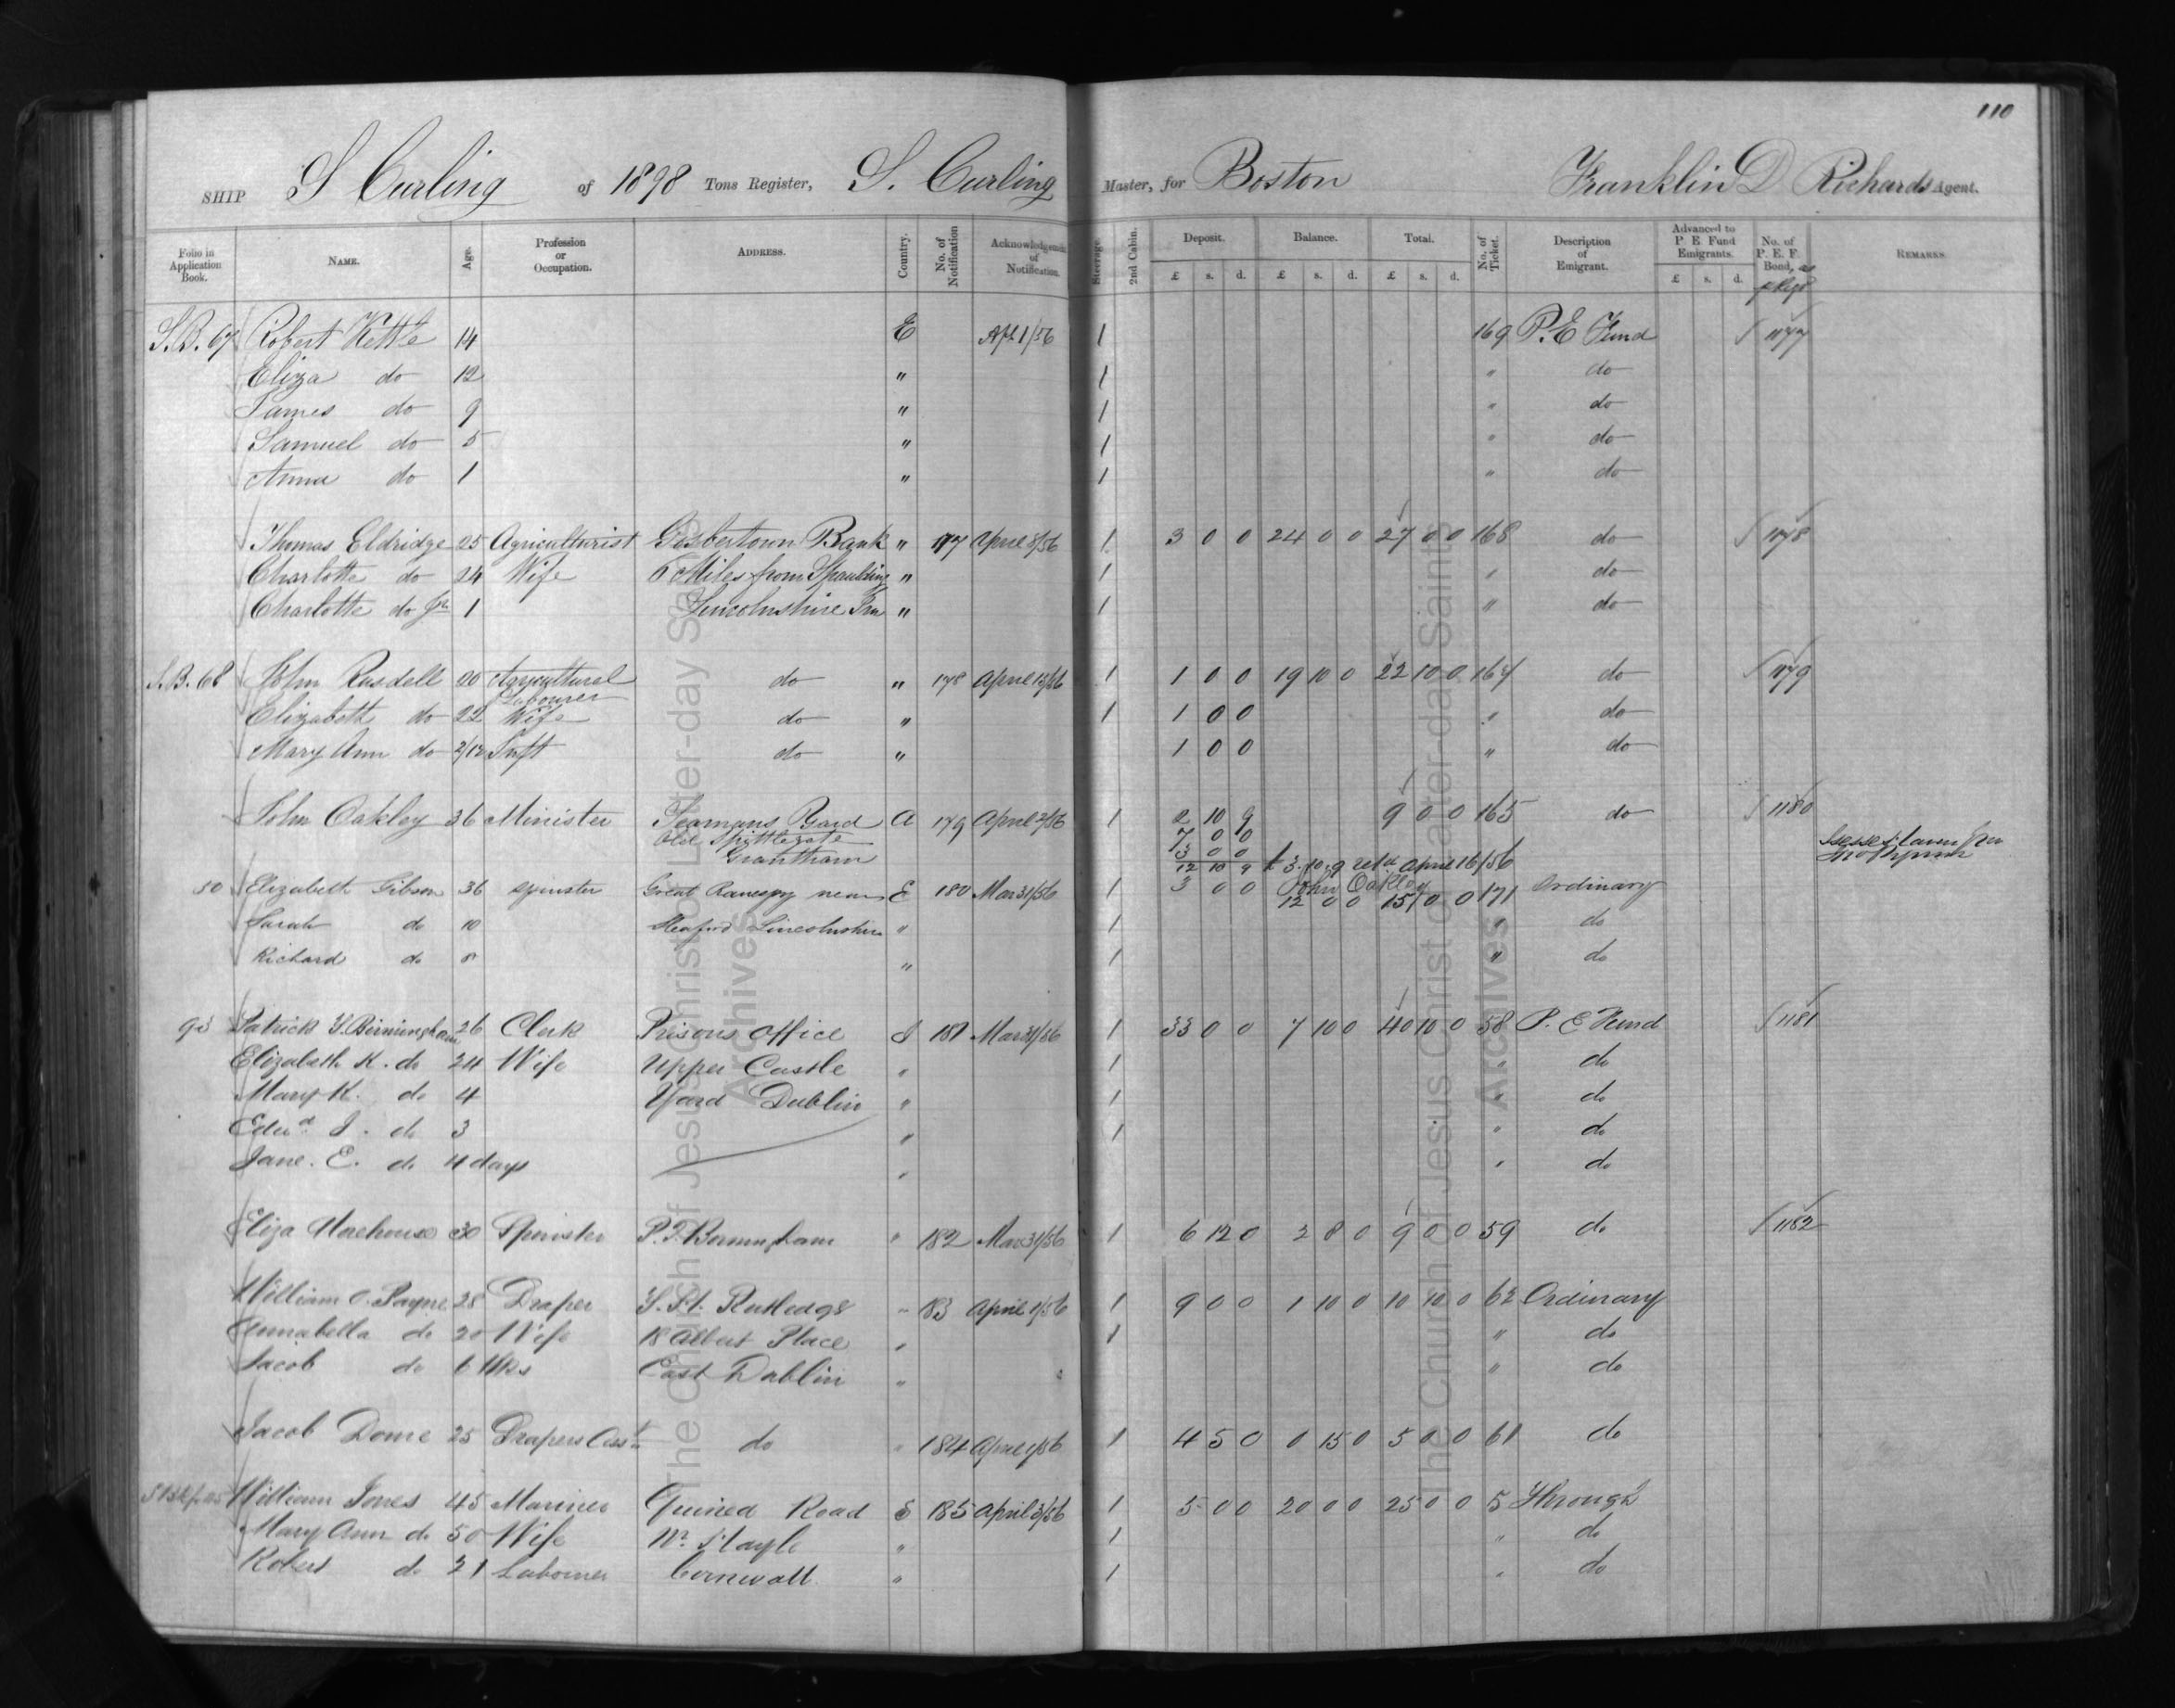 110
SHIP S Curling of 1898 Tons Register, S. Curling Master, for Boston Franklin D Richards Agent.
Folio in Application Book. NAME. Age. Profession or Occupation. ADDRESS. Country. No. of Notification Acknowledgement of Notification. Steerage. 2nd Cabin. Deposit. Balance. Total. No. of Ticket. Description of Emigrant. Advanced to P. E. Fund Emigrants. No. of P. E. F. Bond, REMARKS
£ s. d. £ s. d. £ s. d. £ s. d.
S.B. 67 Robert Kettle 14 E Apl 1/56 1 169 P. E Fund 1177
Eliza do 12 " 1 " do
James do 9 " 1 " do
Samuel do 5 " 1 " do
Anna do 1 " 1 " do
Thomas Eldridge 25 Agriculturist Bank " 177 April 8/56 1 3 0 0 24 0 0 27 0 0 168 do 1178
Charlotte do 24 Wife 6 Miles from Spaulding " 1 " do
Charlotte do Jr 1 Lincolnshire " 1 " do
S.B. 68 John Rusdell 20 Agricultural Labourer do " 178 April 13/56 1 1 0 0 19 10 0 22 10 0 164 do 1179
Elizabeth do 22 Wife do " 1 1 0 0 " do
Mary Ann do 2/12 Inft do " 1 0 0 " do
John Oakley 36 Minister Seamans Yard A 179 April 2/56 1 2 10 9 9 0 0 165 do 1180
Old Spittlegate 7 0 0
Grantham 3 0 0
12 10 9 £3.10.9 retd April 16/56
John Oakley
50 Elizabeth Gibson 36 Spinster Great near E 180 Mar 31/56 1 3 0 0 12 0 0 15 0 0 171 Ordinary
Sarah do 10 Sleaford Lincolnshire " 1 " do
Richard do 8 " 1 " do
93 Patrick T. Birmingham 26 Clerk Prisons Office I 181 Mar 31/56 1 33 0 0 7 10 0 40 10 0 58 P. E Fund 1181
Elizabeth K. do 24 Wife Upper Castle " 1 " do
Mary K. do 4 Yard Dublin " 1 " do
Edwd I. do 3 " 1 " do
Jane. E. do 4 days " " do
Eliza 30 Spinster P. T. Birmingham " 182 Mar 31/56 1 6 12 0 2 8 0 9 0 0 59 do 1182
William O. Payne 28 Draper Rutledge " 183 April 1/56 1 9 0 0 1 10 0 10 10 0 62 Ordinary
Annabella do 20 Wife 18 Albert Place " 1 " do
Jacob do 6 Wks East Dublin " " do
Jacob Dome 25 Drapers Asst do " 184 April 1/56 1 4 5 0 0 15 0 5 0 0 61 do
William Jones 45 Mariner Road E 185 April 3/56 1 5 0 0 20 0 0 25 0 0 5 Through
Mary Ann do 50 Wife Nr Hayle " 1 " do
Robert do 21 Labourer Cornwall " 1 " do
The Church of Jesus Christ of Latter-day Saints
Archives
The Church of Jesus Christ of Latter-day Saints
Archives